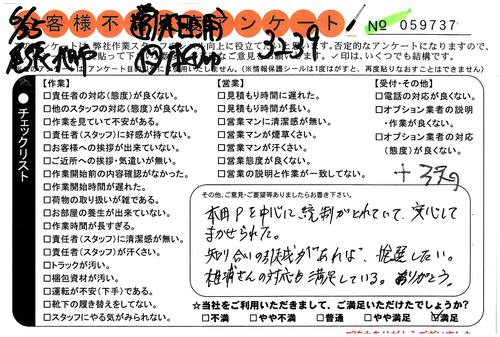 客様不満足アンケート
№ 059737
3239
【作業】
□責任者の対応(態度)が良くない。
□他のスタッフの対応(態度)が良くない。
□作業を見ていて不安がある。
□責任者(スタッフ)に好感が持てない。
□お客様への挨拶が出来ていない。
□ご近所への挨拶・気遣いが無い。
□作業開始前の内容確認がなかった。
□作業開始時間が遅れた。
□荷物の取り扱いが雑である。
□お部屋の養生が出来ていない。
□作業時間が長すぎる。
□責任者(スタッフ)に清潔感が無い。
□責任者(スタッフ)が汗くさい。
□トラックが汚い。
□梱包資材が汚い。
□運転が不安(下手)である。
□靴下の履き替えをしてない。
□スタッフにやる気がみられない。
【営業】
□見積もり時間に遅れた。
□見積もり時間が長い。
□営業マンに清潔感が無い。
□営業マンが煙草くさい。
□営業マンが汗くさい。
□営業態度が良くない。
□営業の説明と作業が一致してない。
【受付・その他】
□電話の対応が良くない。
□オプション業者の説明
・作業が良くない。
□オプション業者の対応
(態度)が良くない。
チェックリスト
その他、ご意見・ご要望等ありましたらお書き下さい。
本田Pを中心に統制がとれていて、安心して
まかせられた。
知り合いの引越があれば、推薦したい。
相浦さんの対応も満足している。ありがとう。
☆当社をご利用いただきまして、ご満足いただけたでしょうか?
□不満 □やや不満 □普通 □やや満足 ☑満足